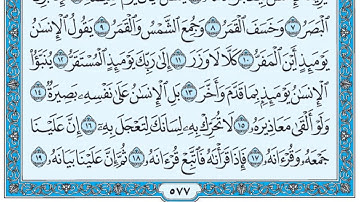 ٱلۡبَصَرُ ٧ وَخَسَفَ ٱلۡقَمَرُ ٨ وَجُمِعَ ٱلشَّمۡسُ وَٱلۡقَمَرُ ٩ يَقُولُ ٱلۡإِنسَٰنُ
يَوۡمَئِذٍ أَيۡنَ ٱلۡمَفَرُّ ١٠ كَلَّا لَا وَزَرَ ١١ إِلَىٰ رَبِّكَ يَوۡمَئِذٍ ٱلۡمُسۡتَقَرُّ ١٢ يُنَبَّؤُاْ
ٱلۡإِنسَٰنُ يَوۡمَئِذِۭ بِمَا قَدَّمَ وَأَخَّرَ ١٣ بَلِ ٱلۡإِنسَٰنُ عَلَىٰ نَفۡسِهِۦ بَصِيرَةٞ ١٤
وَلَوۡ أَلۡقَىٰ مَعَاذِيرَهُۥ ١٥ لَا تُحَرِّكۡ بِهِۦ لِسَانَكَ لِتَعۡجَلَ بِهِۦٓ ١٦ إِنَّ عَلَيۡنَا
جَمۡعَهُۥ وَقُرۡءَانَهُۥ ١٧ فَإِذَا قَرَأۡنَٰهُ فَٱتَّبِعۡ قُرۡءَانَهُۥ ١٨ ثُمَّ إِنَّ عَلَيۡنَا بَيَانَهُۥ ١٩
٥٧٧